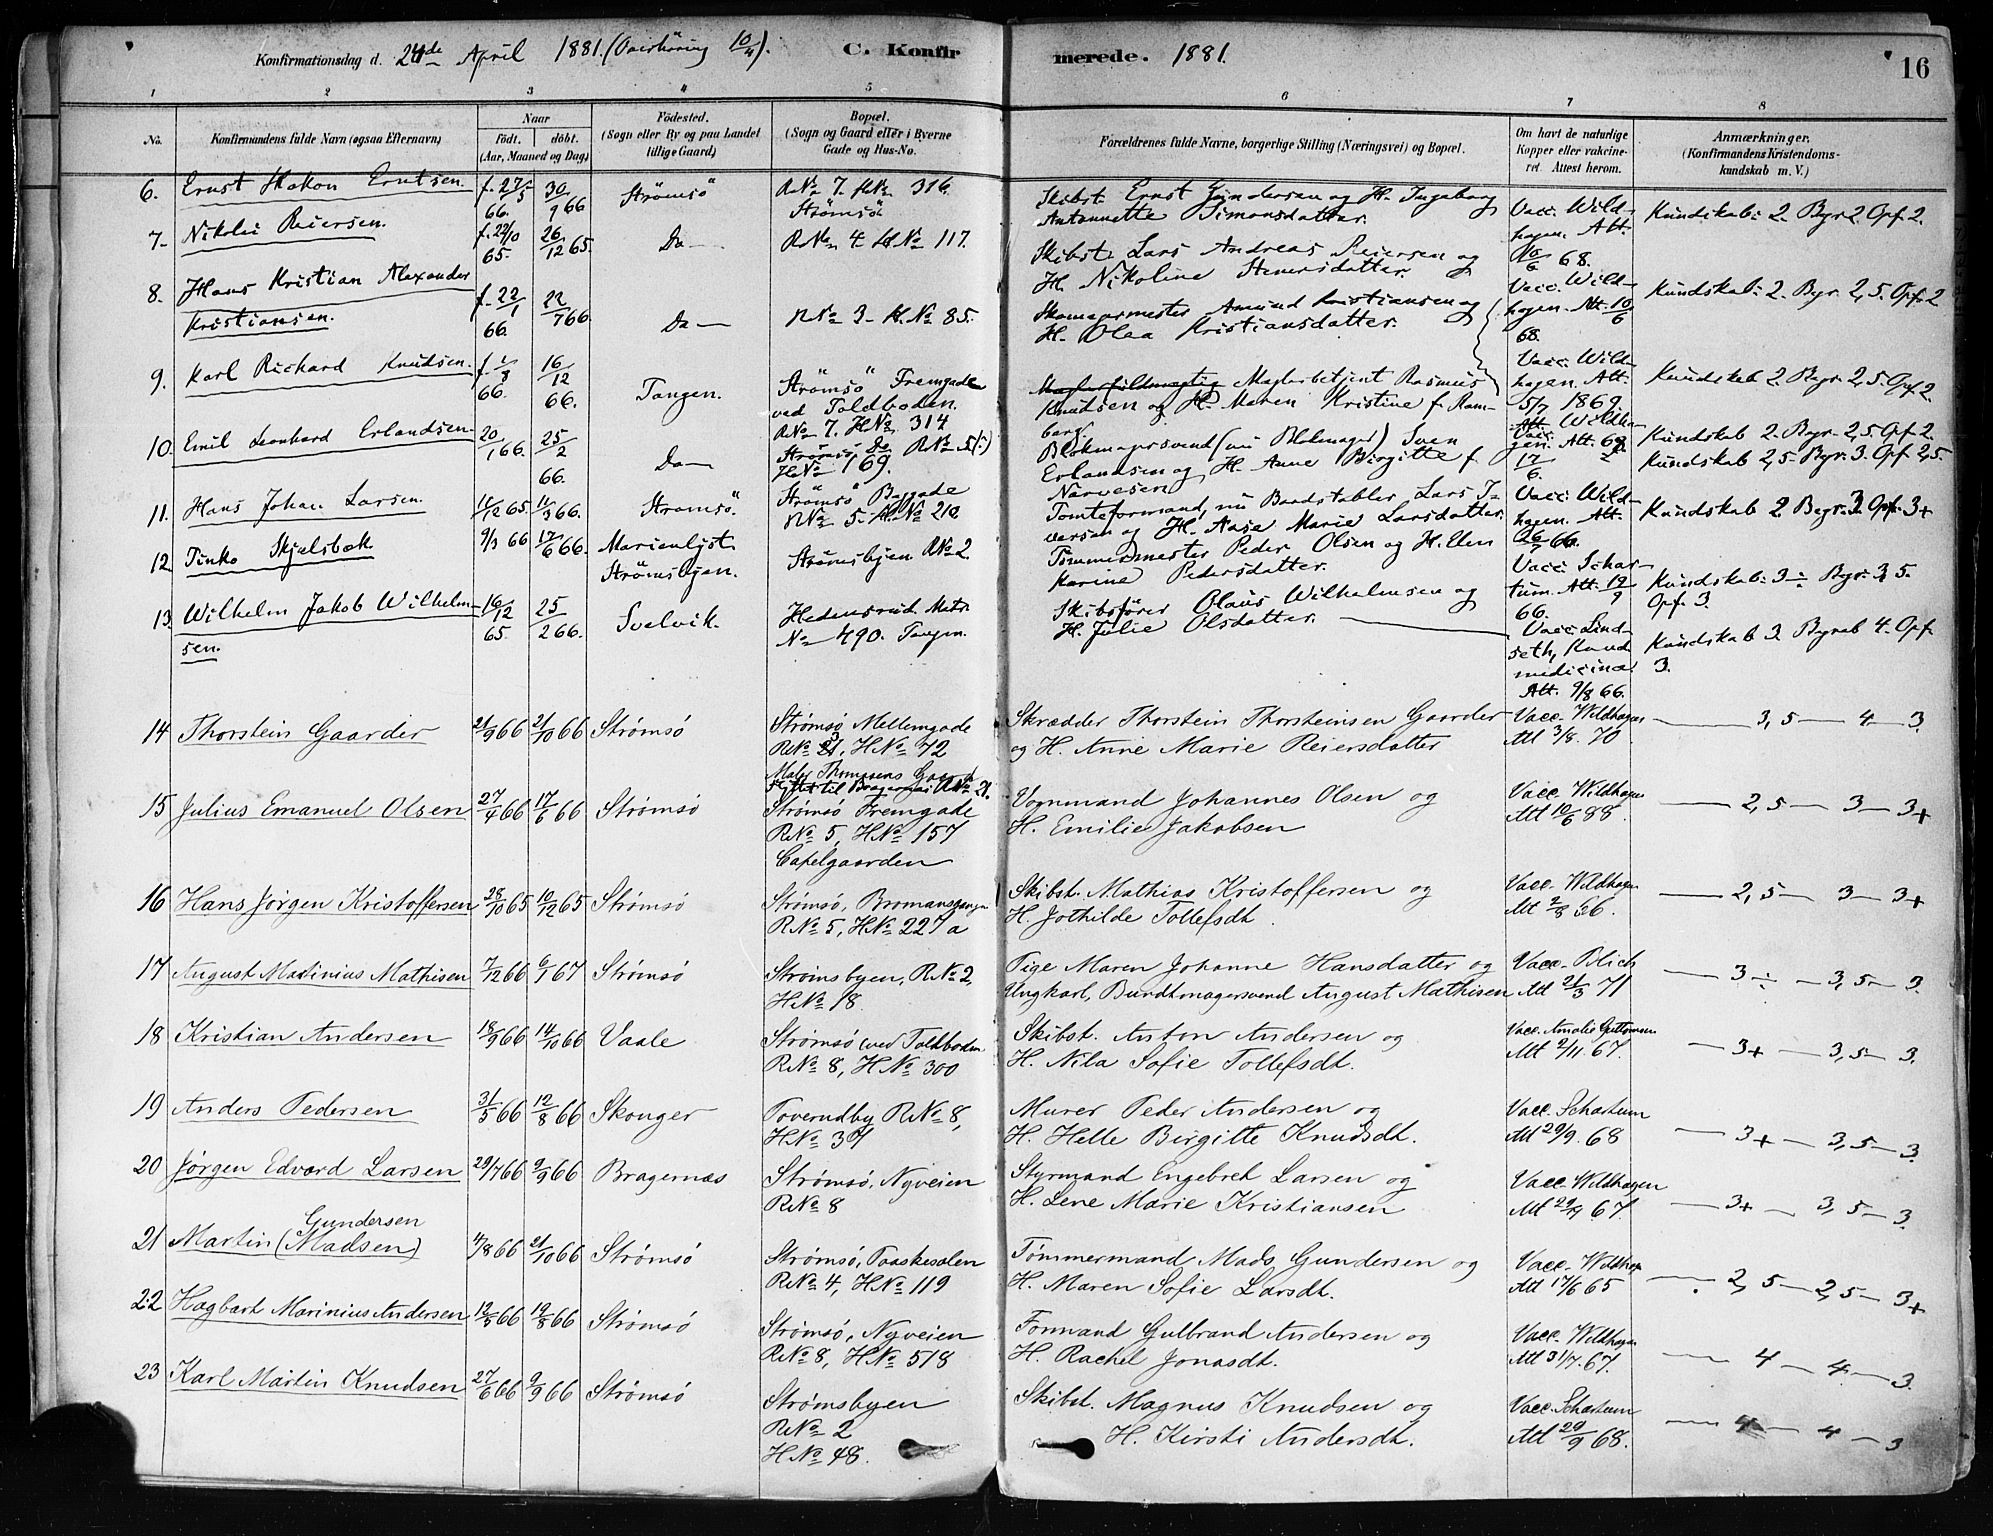 Konfirmationsdag d. 24de April 1881. (Overhöring 10/4). C. Konfirmerede. 1881. 16
1 2 3 4 5 6 7 8
No. Konfirmandens fulde Navn (ogsaa Efternavn) Naar födt. döbt. (Aar, Maaned og Dag) Födested. (Sogn eller By og paa Landet tillige Gaard) Bopæl. (Sogn og Gaard eller i Byerne Gade og Hus-No. Forældrenes fulde Navne, borgerlige Stilling (Næringsvei) og Bopæl. Om havt de naturlige Kopper eller vakcineret. Attest herom. Anmærkninger. (Konfirmandens Kristendomskundskab m. V.)
6. Ernst Hakon Erntsen. f. 27/5 66. 30/9 66 Strömsö R.No 7. H.No 316. Skibst. Ernst Gundersen og H. Ingeborg
Strömsö Antonnette Simonsdatter. Vacc. Wildhagen. Att. Kundskab: 2. Byr 2. Opf. 2.
7. Nikolai Reiersen. f. 22/10 65. 26/12 65. Do— R.No 4. H.No 117. Skibst. Lars Andreas Reiersen og
H. Nikoline Iversdatter. 10/6 68.
8. Hans Kristian Alexander Vacc. Wildhagen. Att. 10/6 68. Kundskab: 2. Byr. 2,5. Opf. 2
Kristiansen. f. 22/1 66. 22/7 66. Do— R.No 3. H.No 85. Skomagermester Amund Kristiansen og
H. Olea Kristiansdatter.
9. Karl Richard Knudsen. f. 1/3 66. 16/12 66. Tangen. Strömsö Fremgade Maglerbetjent Rasmus Vacc. Wildhagen. Att. 5/7 1869 Kundskab 2. Byr. 2,5. Opf. 2.
ved Toldboden. Knudsen og H. Maren Kristine f. Ramberg.
R.No 7. H.No 314
10. Emil Leonhard Erlandsen 20/1 66. 25/2 66. Do— Strömsö, Do R.No 5 Blokmagersvend (nu Blokmager) Sven Kundskab 2. Byr. 2,5. Opf. 2.
H.No 169. Erlandsen og H. Anne Birgitte f. Kundskab 2,5. Byr. 3. Opf. 2,5.
Narvesen
11. Hans Johan Larsen. 11/12 65. 11/3 66. Strömsö. Strömsö Baggade Tomteformand, nu Bordstabler Lars Iversen og Vacc. Wildhagen. Att. Kundskab 2. Byr. 3. Opf. 3+
R.No 5. H.No 210 H. Aase Marie Larsdatter.
12 Tinko Skjelsbæk 9/3 66 17/6 66. Marienlyst Strömsbyen. Strömsbyen R.No 2. Tömmermester Peder Olsen og H. Elen
Karine Pedersdatter. Vacc: Schartum. Att. 19/9 66. Kundskab: 3÷ Byr. 3,5. Opf. 3.
13 Wilhelm Jakob Wilhelmsen. 16/12 65. 25/2 66. Svelvik. Hedensrud Matr. No 490. Tangen. Skibsförer Olaus Wilhelmsen og
H. Julie Olsdatter. Vacc. Lindseth, Kand. medicinæ. Att. 9/8 66. Kundskab 3. Byreb 4. Opf. 3.
14 Thorstein Gaarder 21/9 66 21/10 66 Strømsø Strømsø Mellemgade Skrædder Thorstein Thorsteinsen Gaarder Vacc. Wildhagen — 3,5 — 4 — 3.
R.No 3, H.No 72 og H. Anne Marie Reiersdatter Att 3/8. 70
Maler Thomesens Gaard
Flyttet til Bragernæs R.No 21.
15 Julius Emanuel Olsen 27/4 66 17/6 66 Strømsø Strømsø Fremgade Vognmand Johannes Olsen og Vacc. Wildhagen — 2,5 — 3 — 3+
R.No 5, H.No 157 H. Emilie Jakobsen Att 10/6 88
Capelgaarden
16 Hans Jørgen Kristoffersen 28/10 65 10/12 65 Strømsø Strømsø, Bromansgangen Skibst. Mathias Kristoffersen og Vacc. Wildhagen — 2,5 — 3 — 3+
R.No 5, H.No 227 a H. Jothilde Tollefsdt. Att 2/8 66.
17 August Martinius Mathisen 7/12 66 6/1 67 Strømsø Strømsbyen, R.No 2, Pige Maren Johanne Hansdatter og Vacc. Blich — 3÷ — 3,5 — 3.
H.No 18. Ungkarl, Bundtmagersvend August Mathisen Att 21/3 71
18 Kristian Andersen 18/9 66 14/10 66 Vaale Strømsø ved Toldboden Skibst. Anton Andersen og Vacc. Amalie Guttormsen — 3+ — 3,5 — 3.
R.No 8, H.No 300 H. Nila Sofie Tollefsdt. Att 2/11. 67.
19 Anders Pedersen 31/5 66 12/8 66 Skouger Toverudby R.No 8, Murer Peder Andersen og Vacc. Schartum — 3+ — 3,5 — 3.
H.No 37 H. Helle Birgitte Knudsdt. Att 29/9. 68
20 Jørgen Edvard Larsen 29/7 66 9/9 66 Bragernæs Strømsø, Nyveien Styrmand Engebret Larsen og Vacc. Wildhagen — 3+ — 3,5 — 3.
R.No 8 H. Lene Marie Kristiansen
21 Martin (Madsen) Gundersen 4/8 66 21/10 66 Strømsø Strømsø, Paaskesalen Tømmermand Mads Gundersen og Vacc. Wildhagen — 2,5 — 2,5 — 3+
R.No 4, H.No 119 H. Maren Sofie Larsdt. Att 17/6 65
22 Hagbart Marinius Andersen 12/5 66 19/8 66 Strømsø Strømsø, Nyveien Formand Gulbrand Andersen og Vacc. Wildhagen — 4 — 4 — 3.
R.No 8, H.No 518 H. Rachel Jonasdt. Att 31/7. 67.
23 Karl Martin Knudsen 27/6 66 9/9 66 Strømsø Strømsbyen Skibst. Magnus Knudsen og Vacc. Schartum — 4 — 4 — 3
R.No 2 H. Kirsti Andersdt. Att 29/9 68.
H.No 48.